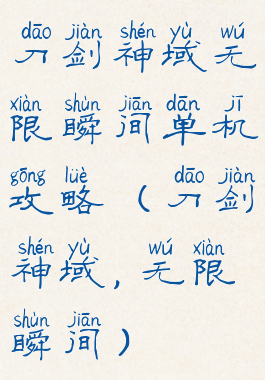 dāo jiàn shén yù wú
刀剑神域无
xiàn shùn jiān dān jī
限瞬间单机
gōng lüè dāo jiàn
攻略（刀剑
shén yù wú xiàn
神域，无限
shùn jiān
瞬间）